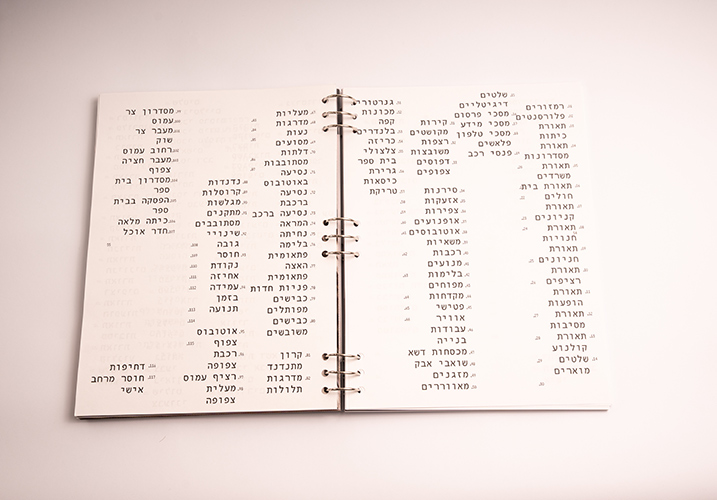 רמזורים
פלורסנטים
תאורת
כיתות
תאורת
מסדרונות
תאורת
משרדים
תאורת בית
חולים
תאורת
קניונים
תאורת
חנויות
תאורת
חניונים
תאורת
רציפים
תאורת
הופעות
תאורת
מסיבות
תאורת
קולנוע
שלטים
מוארים
שלטים
דיגיטליים
מסכי פרסום
מסכי מידע
מסכי טלפון
פלאשים
פנסי רכב
קירות
מקושטים
רצפות
משובצות
דפוסים
צפופים
סירנות
אזעקות
צפירות
אופנועים
אוטובוסים
משאיות
רכבות
מנועים
בלימות
מפוחים
מקדחות
פטישי
אוויר
עבודות
בנייה
מכסחות דשא
שואבי אבק
מזגנים
מאווררים
גנרטורים
מכונות
קפה
בלנדרים
כריזה
צלצולי
בית ספר
גרירת
כיסאות
טריקת
מעליות
מדרגות
נעות
מסועים
דלתות
מסתובבות
נסיעה
באוטובוס
נסיעה
ברכבת
נסיעה ברכב
המראה
נחיתה
בלימה
פתאומית
האצה
פתאומית
פניות חדות
כבישים
מפותלים
כבישים
משובשים
קרון
מתנדנד
מדרגות
תלולות
נדנדות
קרוסלות
מגלשות
מתקנים
מסתובבים
שינויי
גובה
חוסר
נקודת
אחיזה
עמידה
בזמן
תנועה
אוטובוס
צפוף
רכבת
צפופה
רציף עמוס
מעלית
צפופה
מסדרון צר
עמוס
מעבר צר
שוק
רחוב עמוס
מעבר חציה
צפוף
מסדרון בית
ספר
הפסקה בבית
ספר
כיתה מלאה
חדר אוכל
דחיפות
חוסר מרחב
אישי